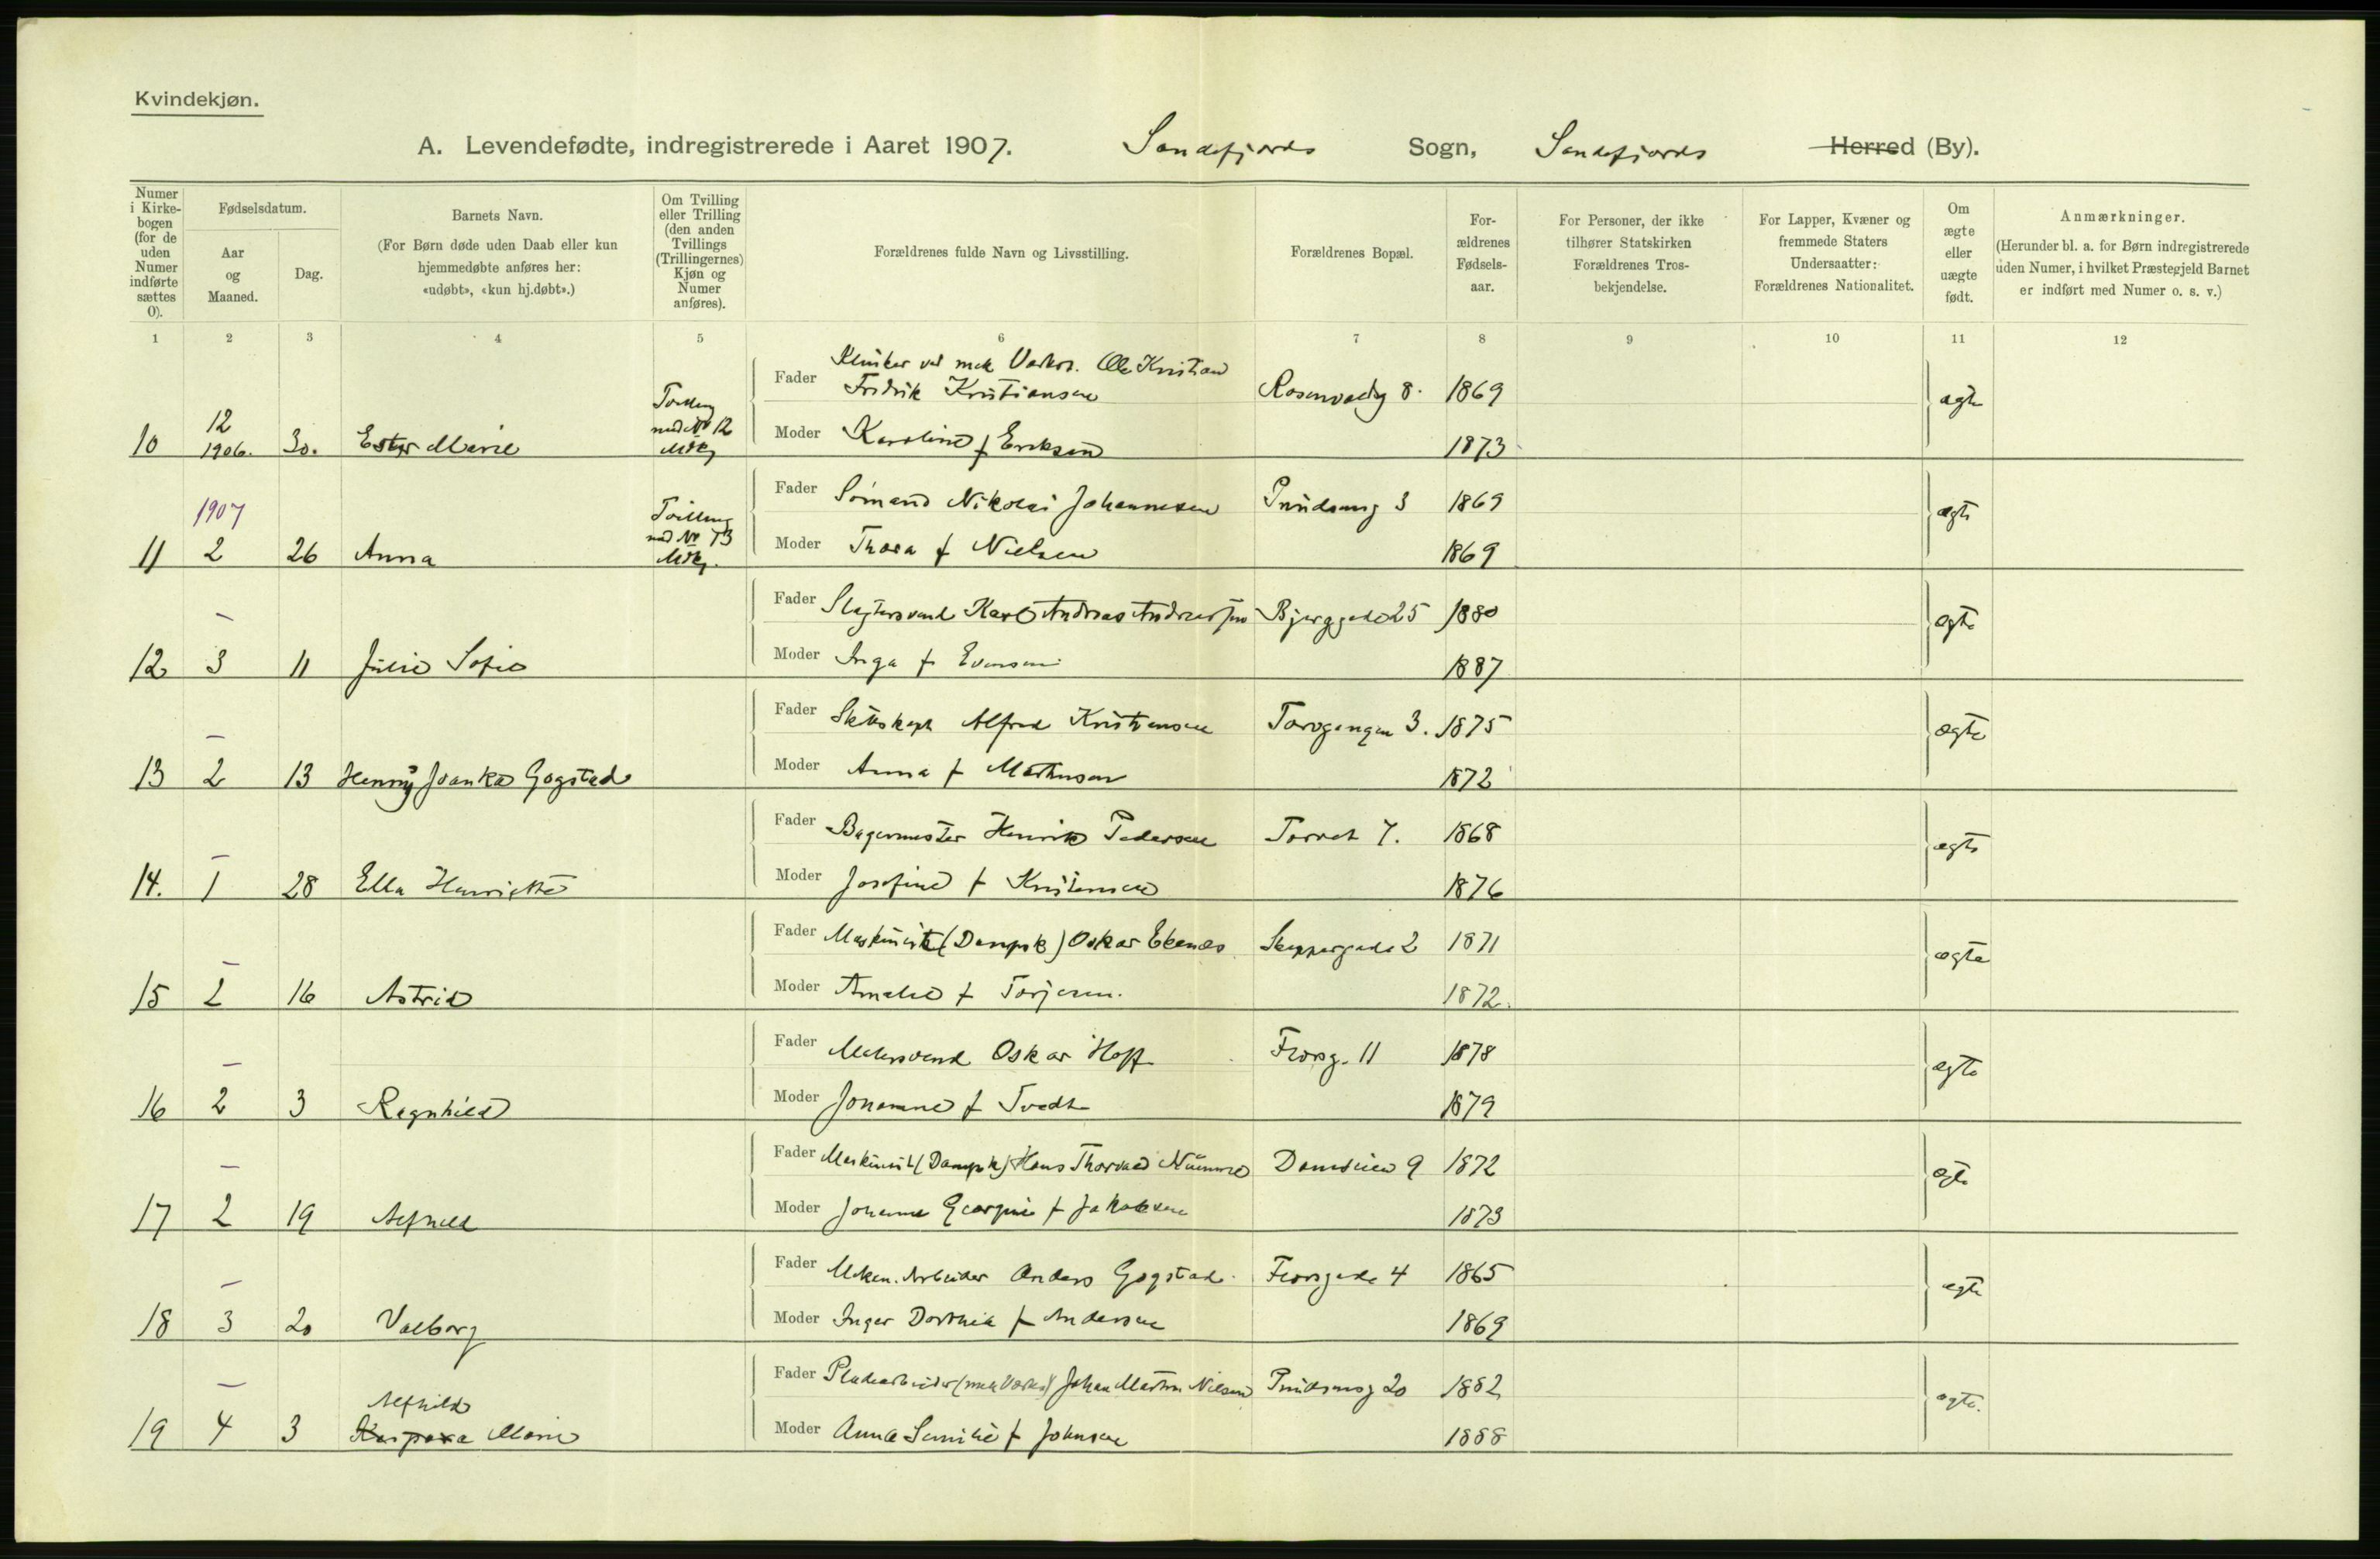 Kvindekjøn.
A. Levendefødte, indregistrerede i Aaret 1907. Sandefjords Sogn, Sandefjords Herred (By).
Numer i Kirkebogen (for de uden Numer indførte sættes 0).
Fødselsdatum.
Aar og Maaned.
Dag.
Barnets Navn.
(For Børn døde uden Daab eller kun hjemmedøbte anføres her: «udøbt», «kun hj.døbt».)
Om Tvilling eller Trilling (den anden Tvillings (Trillingernes) Kjøn og Numer anføres).
Forældrenes fulde Navn og Livsstilling.
Forældrenes Bopæl.
Forældrenes Fødselsaar.
For Personer, der ikke tilhører Statskirken Forældrenes Trosbekjendelse.
For Lapper, Kvæner og fremmede Staters Undersaatter: Forældrenes Nationalitet.
Om ægte eller uægte født.
Anmærkninger.
(Herunder bl. a. for Børn indregistrerede uden Numer, i hvilket Præstegjeld Barnet er indført med Numer o. s. v.)
1 2 3 4 5 6 7 8 9 10 11 12
Fader Klinker ved mek Værks. Ole Kristian Fredrik Kristiansen Rosenvoldg 8. 1869 ægte
10 12 1906. 30. Ester Marie Tvilling med No 12 Mdkj Moder Karoline f Eriksen 1873
Fader Sømand Nikolai Johannesen Prindsensg 3 1869 ægte
11 1907 2 26 Anna Tvilling med No 13 Mdkj. Moder Thora f Nielsen 1869
Fader Slagtersvend Karl Andreas Andreassen Bjerggade 25 1880 ægte
12 – 3 11 Julie Sofie Moder Inga f Evensen 1887
Fader Skibskapt Alfred Kristiansen Torvgangen 3. 1875 ægte
13 – 2 13 Henny Gogstad Moder Anna f Mathisen 1872
Fader Bagermester Henrik Pedersen Torvet 7. 1868 ægte
14. – 1 28 Ella Henriette Moder Josefine f Kristensen 1876
Fader Maskinist (Dampsk) Oskar Ekenæs Skippergade 2 1871 ægte
15 – 2 16 Astrid Moder Amalie f Torjesen. 1872.
Fader Malersvend Oskar Hoff Frorsg. 11 1878 ægte
16 – 2 3 Ragnhild Moder Johanne f Tvedt 1879
Fader Maskinist (Dampsk) Hans Thorvald 9 1872 ægte
17 – 2 19 Alfhild Moder Johanne Georgine f Jakobsen 1873
Fader Meken. Arbeider Anders Gogstad. Frorsgade 4 1865 ægte
18 – 3 20 Valborg Moder Inger Dorthea f Andersen 1869
Fader Pladearbeider (mek Værks) Johan Martin Nilsen Prindsensg 20 1882 ægte.
19 – 4 3 Alfhild Kaspara Marie Moder Anna f Johnsen 1888